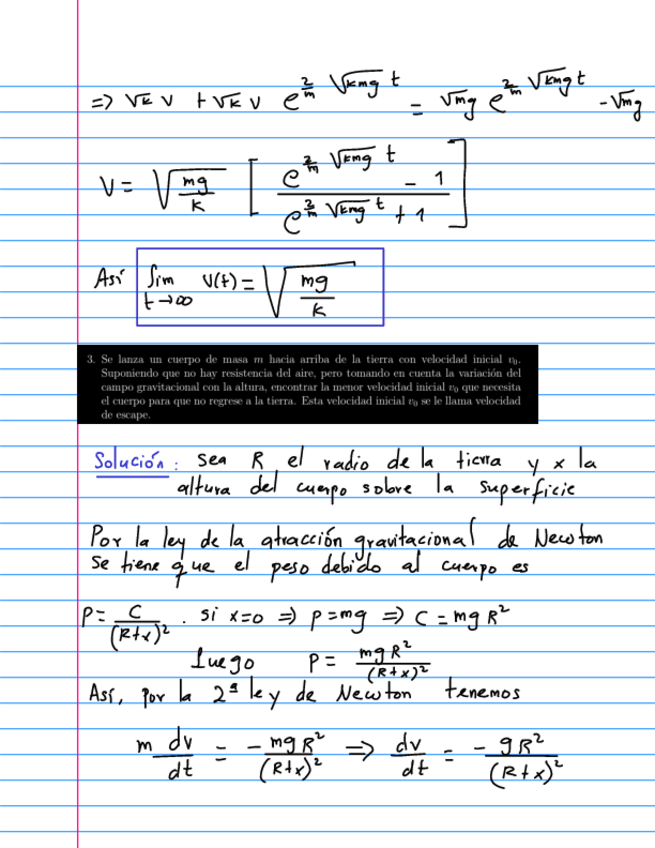 => √k v + √k v e^{2/m √kmg t} = √mg e^{2/m √kmg t} - √mg
V = √(mg/k) [ (e^{2/m √kmg t} - 1) / (e^{2/m √kmg t} + 1) ]
Así lim t→∞ v(t) = √(mg/k)
3. Se lanza un cuerpo de masa m hacia arriba de la tierra con velocidad inicial v₀.
Suponiendo que no hay resistencia del aire, pero tomando en cuenta la variación del
campo gravitacional con la altura, encontrar la menor velocidad inicial v₀ que necesita
el cuerpo para que no regrese a la tierra. Esta velocidad inicial v₀ se le llama velocidad
de escape.
Solución: sea R el radio de la tierra y x la
altura del cuerpo sobre la superficie
Por la ley de la atracción gravitacional de Newton
se tiene que el peso debido al cuerpo es
P = C/(R+x)². si x=0 => p=mg => C = mg R²
Luego P = mg R²/(R+x)²
Así, por la 2ª ley de Newton tenemos
m dv/dt = -mg R²/(R+x)² => dv/dt = -g R²/(R+x)²